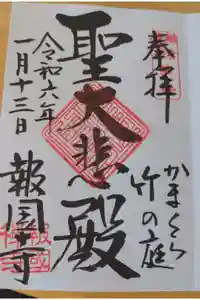 奉拝
かまくら
竹の庭
聖大悲殿
令和六年
一月十三日
報国寺